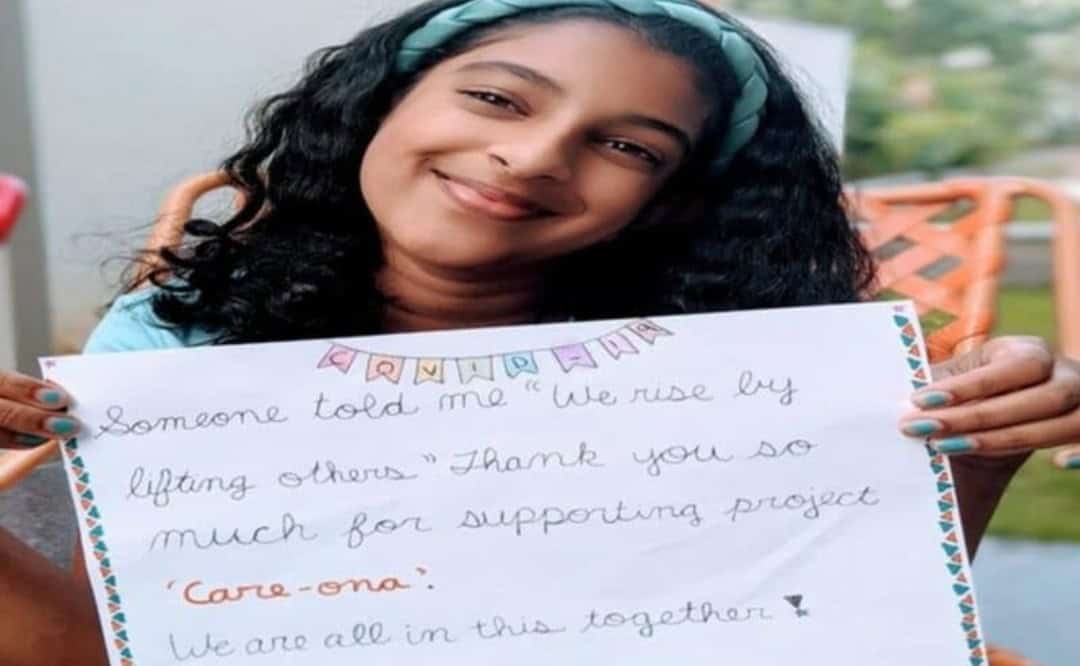 COVID-19
Someone told me "We rise by
lifting others" Thank you so
much for supporting project
'Care-ona'.
We are all in this together!